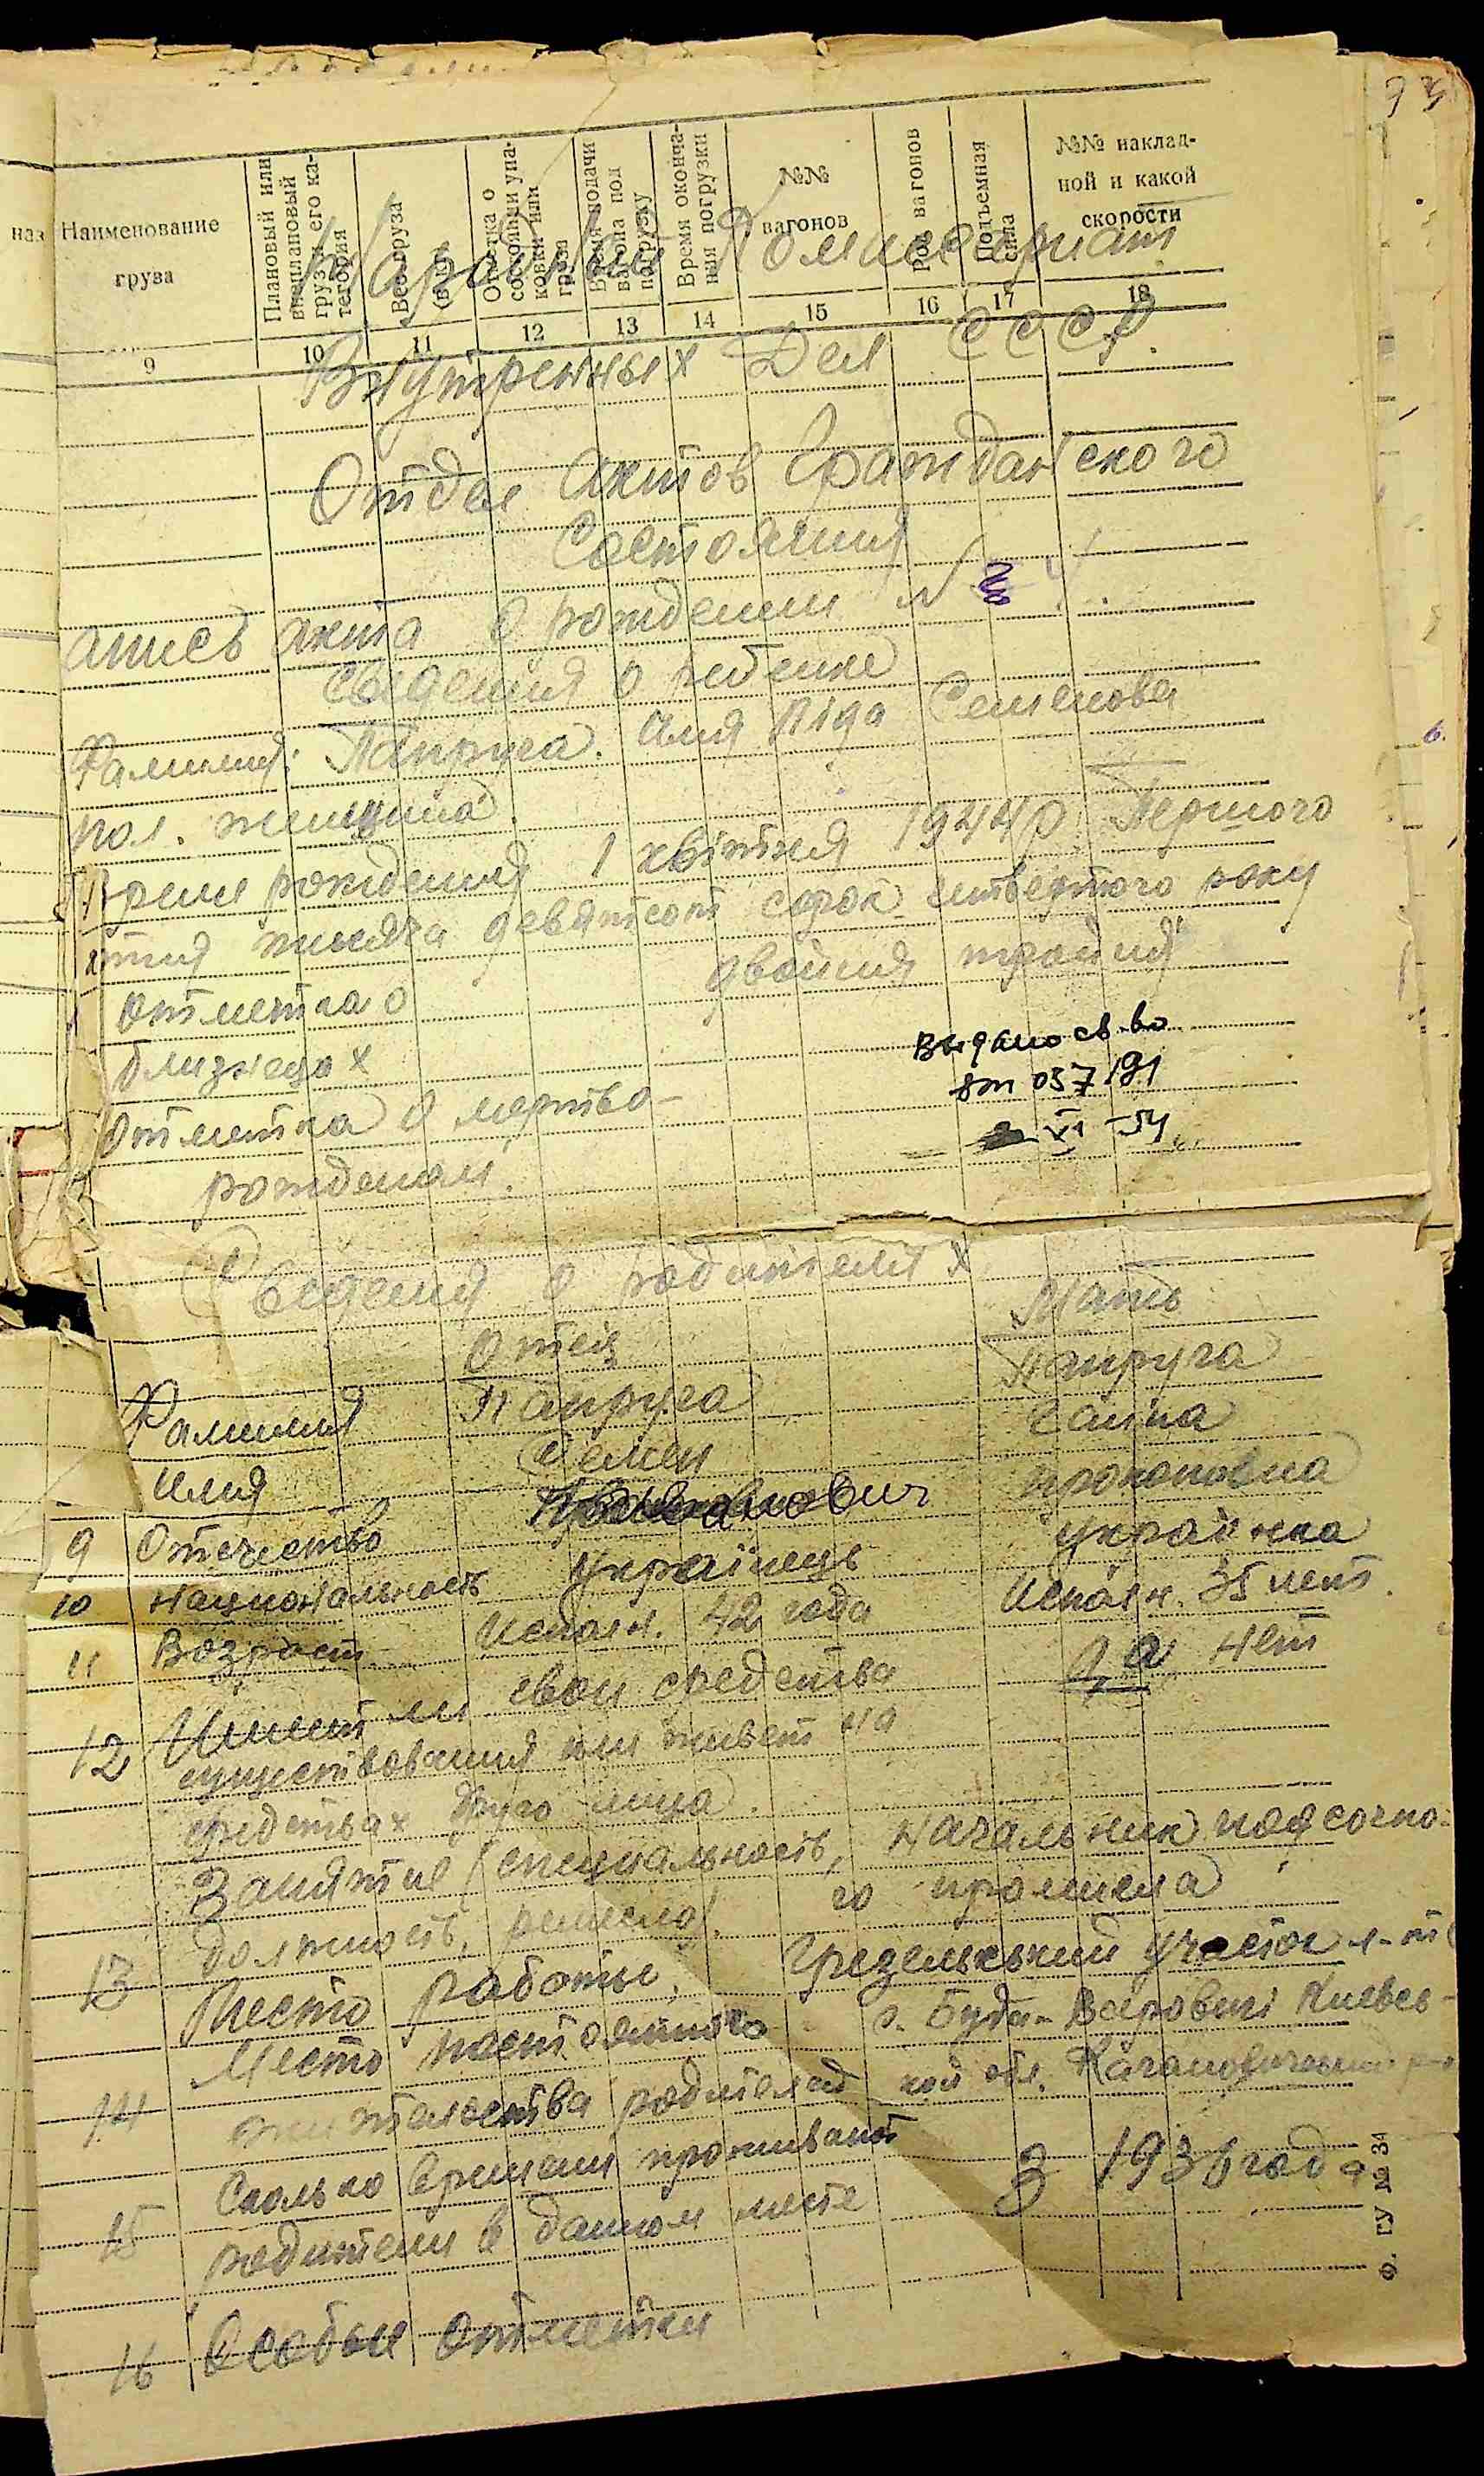 наз
Наименование
груза
Плановый или
внеплановый
груз и его ка-
тегория
Вес груза
(в
Отметка о
состоянии упа-
ковки или
груза
Время подачи
вагона под
погрузку
Время оконча-
ния погрузки
№№
вагонов
Род вагонов
Подъемная
сила
№№ наклад-
ной и какой
скорости
9 10 11 12 13 14 15 16 17 18
Народный Комиссариат
Внутренных Дел СССР.
Отдел актов Гражданского
Состояния
апись акта о рождении N
сведения о ребенке
Фамилия: Папруга. Имя Ліда Семенова
пол. женщина
Время рождения 1 квітня 1944 р. Першого
тисяча девятсот сорок четвертого року
Отметка о двойня тройня
близнецах
Отметка о мертво-
рожденом.
Выдано св-во
057191
VI-54
Сведения о родителях
Отец Мать
Фамилия Папруга Папруга
Имя Семен Ганна
9 Отечество Прокоповна
10 Национальность Українець Українка
11 Возраст Исполн. 42 года Исполн. 35 лет.
12 Имеет ли свои средства да нет
существования или живет на
средствах друго лица.
13 Занятие (специальность, Начальник подсочно-
должность, ремесло). го промисла
Место работы, участок
14 Место постоянного с. Буда-Варовичі Киевс-
жительства родителей кой обл. Кагановический
15 Сколько времени проживают З 1936 года
родители в данном месте
16 Особые отметки
Ф. ГУ № 34